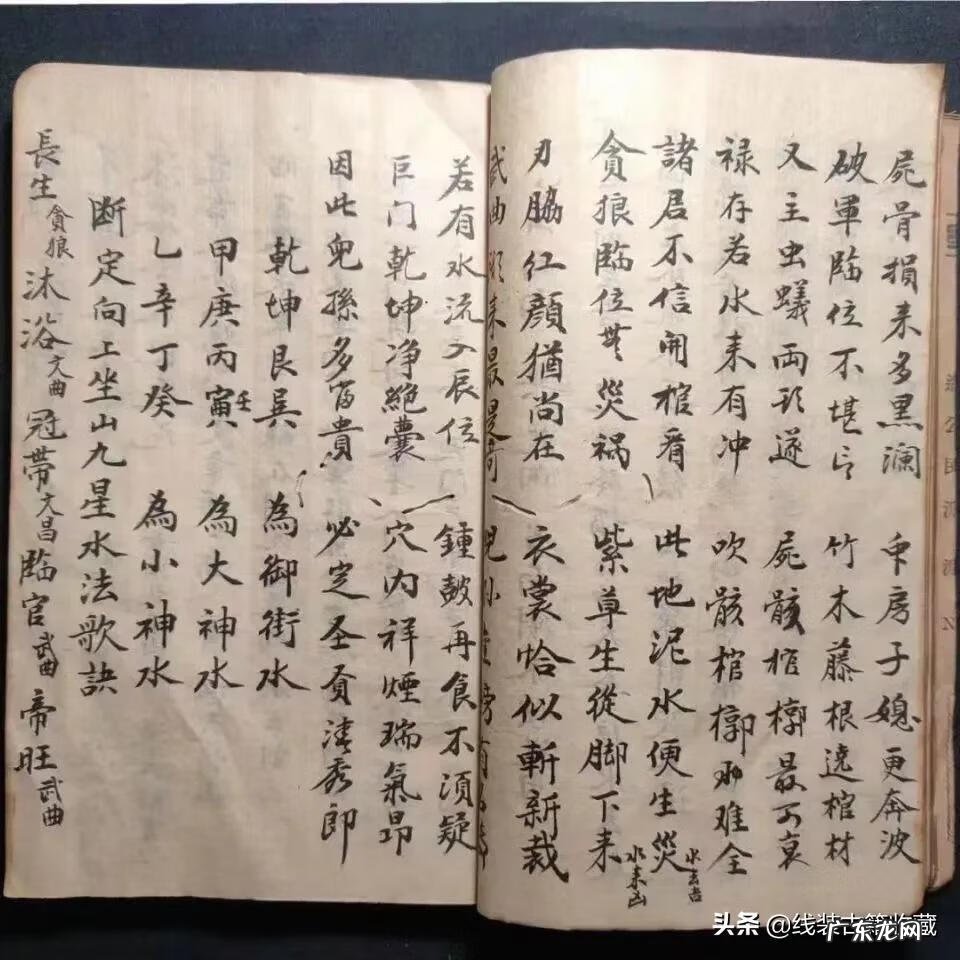 屍骨損来多黒瀾 中房子媳更奔波
破軍臨位不堪言 竹木藤根遶棺材
又主虫蟻両形遂 屍骸棺槨最可哀
禄存若水来有冲 吹骸棺槨 难全
諸君不信開棺看 此地泥水便生災 水去吉
貪狼臨位無災祸 紫草生從脚下来 水来凶
刃脇红顔猶尚在 衣裳恰似斬新裁
武曲 来最是奇
若有水流入辰位 鍾皷再食不須疑
巨门乾坤净絶囊 穴内祥煙瑞氣昂
因此兒孫多富貴 必定圣 清秀郎
乾坤艮巽 為御街水
甲庚丙壬寅 為大神水
乙辛丁癸 為小神水
断定向上坐山九星水法歌訣
長生貪狼 沐浴文曲 冠帯文昌 臨官武曲 帝旺武曲
头条 @线装古籍收藏
广东龙网